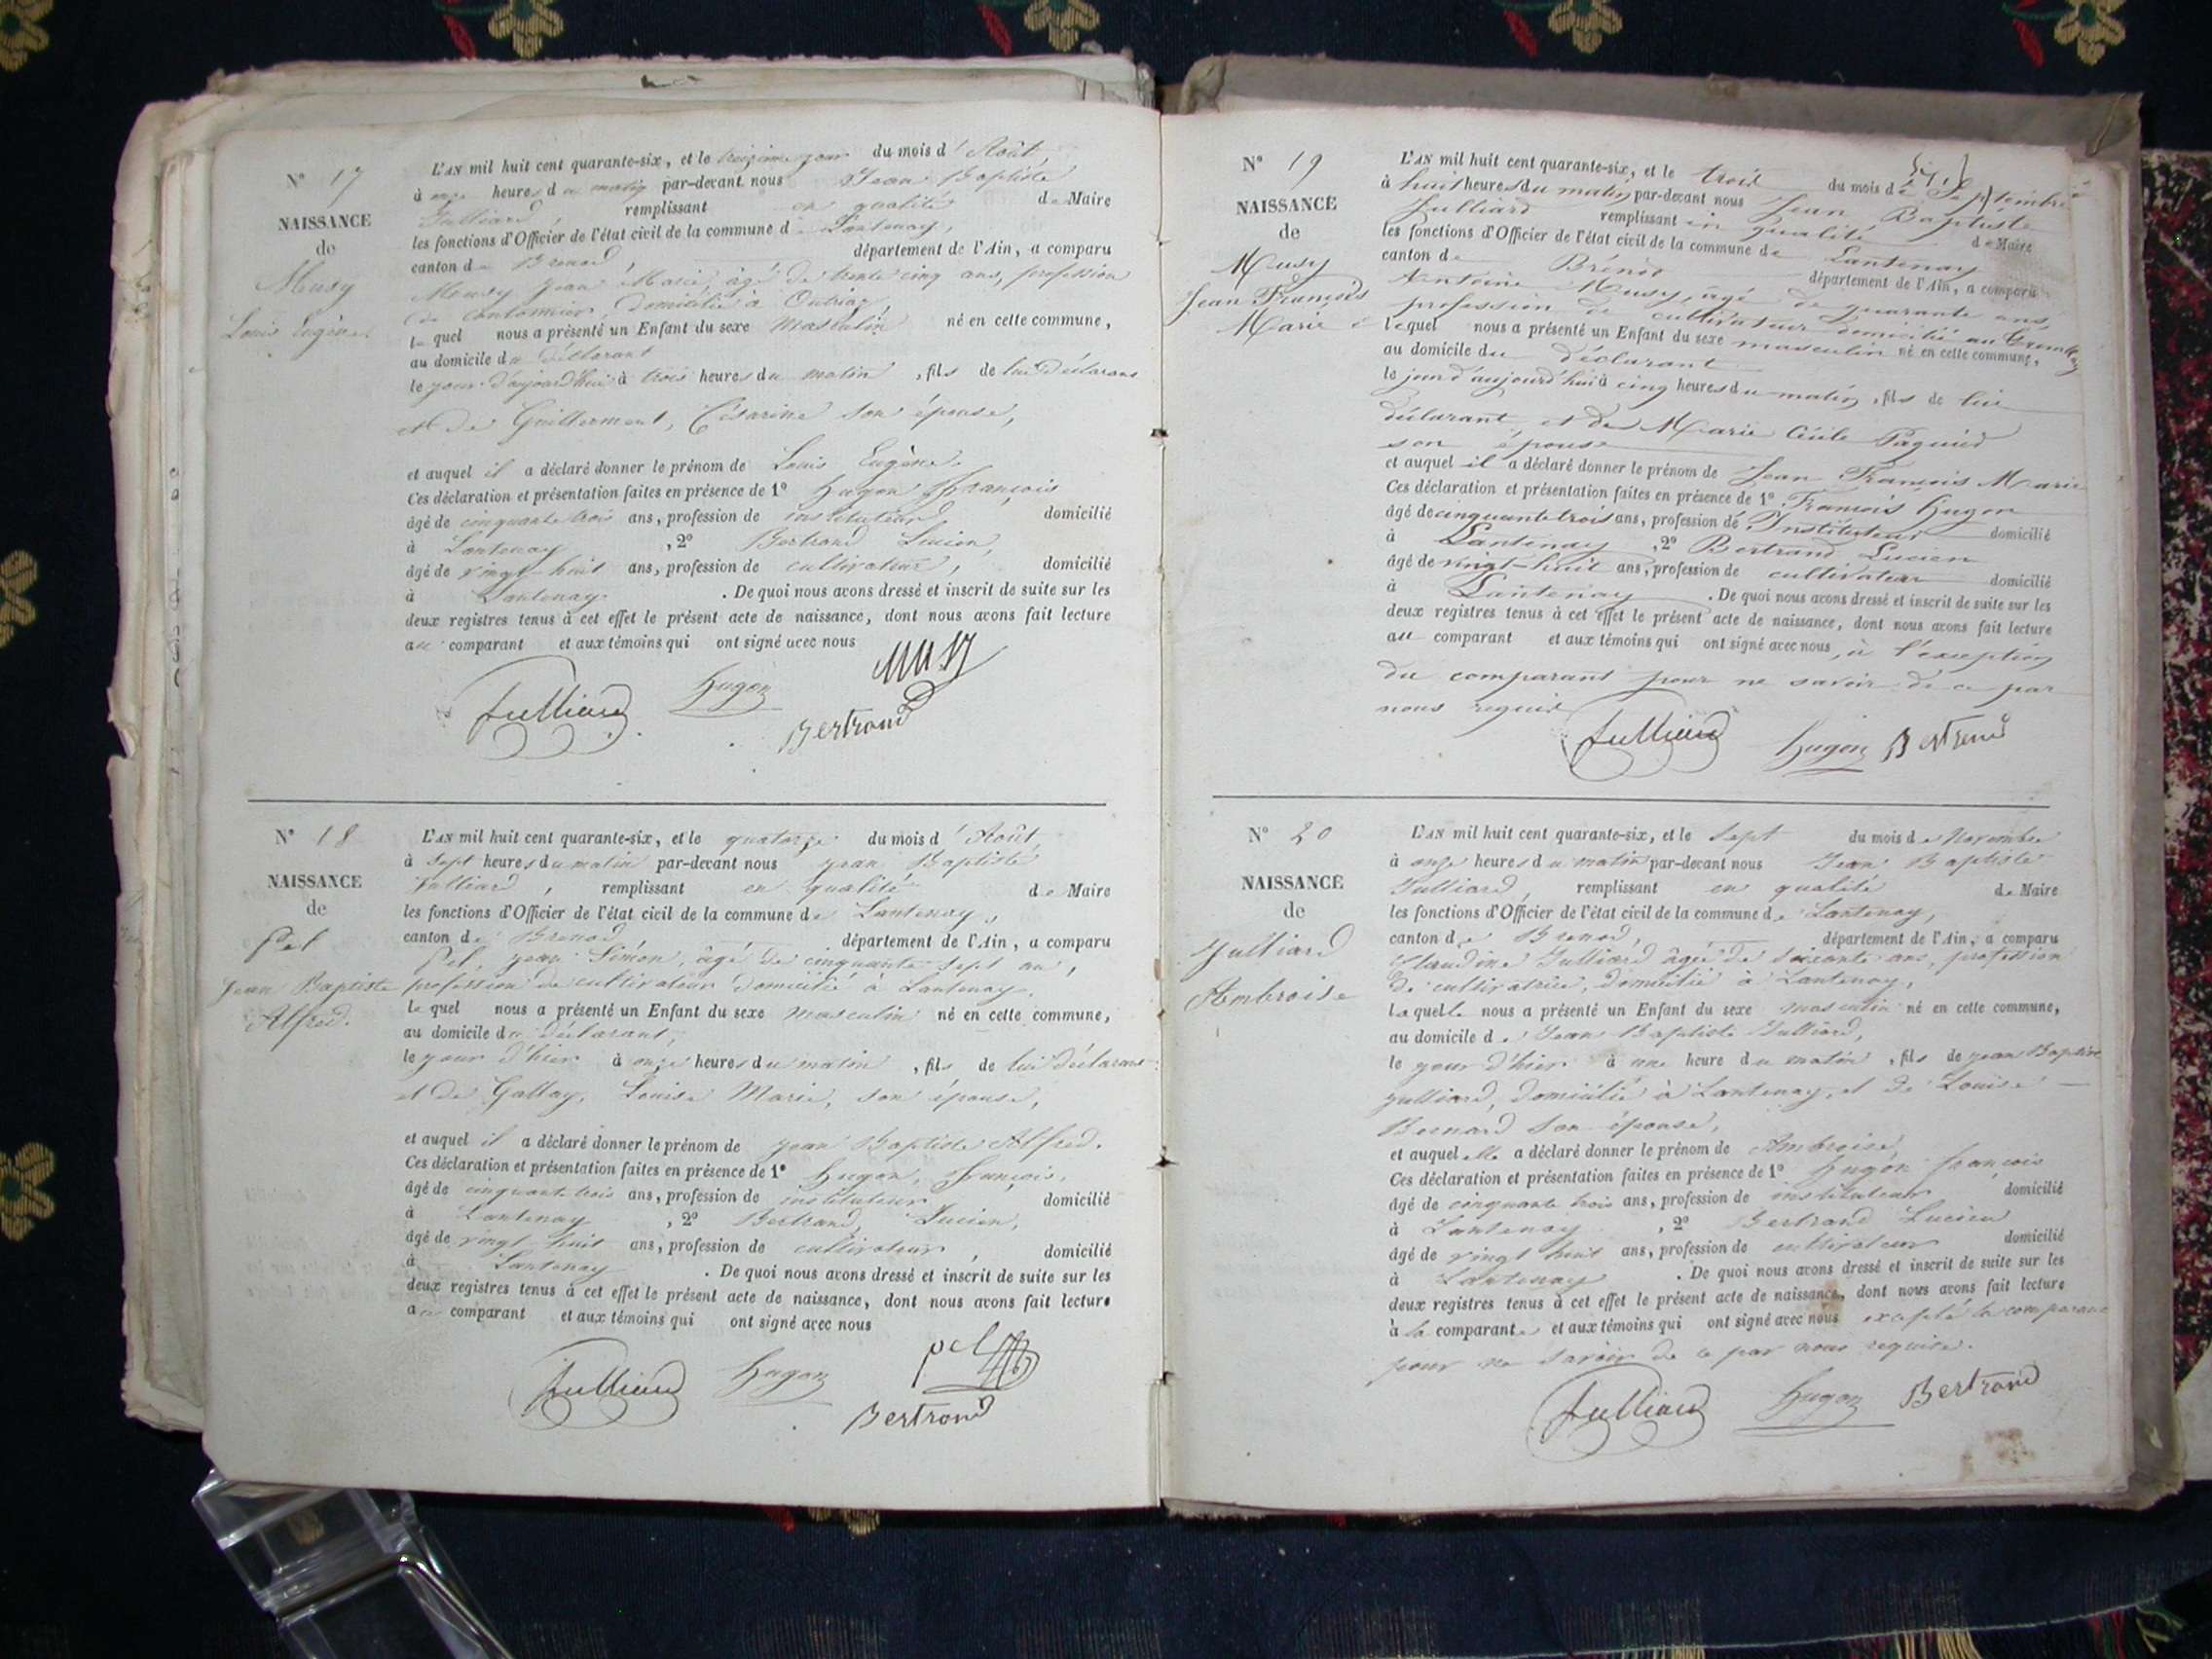 N° 17
NAISSANCE
de
Musy
Louis Eugène.
L'AN mil huit cent quarante-six, et le treizième jour du mois d'Août,
à onze heures du matin par-devant nous Jean Baptiste
Julliard, remplissant en qualité de Maire
les fonctions d'Officier de l'état civil de la commune de Lantenay,
canton de Brenod, département de l'Ain, a comparu
Musy Jean Marie, âgé de trente cinq ans, profession
de cantonnier, domicilié à Outriaz,
lequel nous a présenté un Enfant du sexe masculin né en cette commune,
au domicile du déclarant
le jour d'aujourd'hui à trois heures du matin, fils de lui Déclarant
et de Guillermont, Césarine son épouse,
et auquel il a déclaré donner le prénom de Louis Eugène.
Ces déclaration et présentation faites en présence de 1° Hugon François
âgé de cinquante trois ans, profession de instituteur domicilié
à Lantenay, 2° Bertrand Lucien,
âgé de vingt-huit ans, profession de cultivateur, domicilié
à Lantenay. De quoi nous avons dressé et inscrit de suite sur les
deux registres tenus à cet effet le présent acte de naissance, dont nous avons fait lecture
au comparant et aux témoins qui ont signé avec nous
Musy
Julliard Hugon
Bertrand
N° 18
NAISSANCE
de
Pel
Jean Baptiste
Alfred.
L'AN mil huit cent quarante-six, et le quatorze du mois d'Août,
à sept heures du matin par-devant nous Jean Baptiste
Julliard, remplissant en qualité de Maire
les fonctions d'Officier de l'état civil de la commune de Lantenay,
canton de Brenod, département de l'Ain, a comparu
Pel, Jean Simon, âgé de cinquante sept an,
profession de cultivateur domicilié à Lantenay,
lequel nous a présenté un Enfant du sexe masculin né en cette commune,
au domicile du déclarant,
le jour d'hier à onze heures du matin, fils de lui déclarant
et de Gallay, Louise Marie, son épouse,
et auquel il a déclaré donner le prénom de Jean Baptiste Alfred.
Ces déclaration et présentation faites en présence de 1° Hugon, François,
âgé de cinquante trois ans, profession de instituteur domicilié
à Lantenay, 2° Bertrand, Lucien,
âgé de vingt-huit ans, profession de cultivateur, domicilié
à Lantenay. De quoi nous avons dressé et inscrit de suite sur les
deux registres tenus à cet effet le présent acte de naissance, dont nous avons fait lecture
au comparant et aux témoins qui ont signé avec nous
Julliard Hugon pel
Bertrand
N° 19
NAISSANCE
de
Musy
Jean François
Marie
L'AN mil huit cent quarante-six, et le trois du mois de Septembre
à huit heures du matin par-devant nous Jean Baptiste
Julliard remplissant en qualité de Maire
les fonctions d'Officier de l'état civil de la commune de Lantenay
canton de Brénod département de l'Ain, a comparu
Antoine Musy, âgé de quarante ans,
profession de cultivateur domicilié au
lequel nous a présenté un Enfant du sexe masculin né en cette commune,
au domicile du déclarant
le jour d'aujourd'hui à cinq heures du matin, fils de lui
déclarant, et de Marie Cécile Paquied
son épouse
et auquel il a déclaré donner le prénom de Jean François Marie
Ces déclaration et présentation faites en présence de 1° François Hugon
âgé de cinquante trois ans, profession de Instituteur domicilié
à Lantenay, 2° Bertrand Lucien
âgé de vingt-huit ans, profession de cultivateur domicilié
à Lantenay. De quoi nous avons dressé et inscrit de suite sur les
deux registres tenus à cet effet le présent acte de naissance, dont nous avons fait lecture
au comparant et aux témoins qui ont signé avec nous, à l'exception
du comparant pour ne savoir de ce par
nous requis
Julliard Hugon Bertrand
N° 20
NAISSANCE
de
Julliard
Ambroise
L'AN mil huit cent quarante-six, et le sept du mois de Novembre
à onze heures du matin par-devant nous Jean Baptiste
Julliard, remplissant en qualité de Maire
les fonctions d'Officier de l'état civil de la commune de Lantenay,
canton de Brenod, département de l'Ain, a comparu
Claudine Julliard âgée de soixante ans, profession
de cultivatrice, domicilié à Lantenay,
laquelle nous a présenté un Enfant du sexe masculin né en cette commune,
au domicile de Jean Baptiste Julliard,
le jour d'hier à une heure du matin, fils de Jean Baptiste
Julliard, domicilié à Lantenay, et de Louise
Bernard son épouse,
et auquel elle a déclaré donner le prénom de Ambroise,
Ces déclaration et présentation faites en présence de 1° Hugon françois
âgé de cinquante trois ans, profession de instituteur domicilié
à Lantenay, 2° Bertrand Lucien
âgé de vingt huit ans, profession de cultivateur domicilié
à Lantenay. De quoi nous avons dressé et inscrit de suite sur les
deux registres tenus à cet effet le présent acte de naissance, dont nous avons fait lecture
à la comparante et aux témoins qui ont signé avec nous excepté la comparante
pour ne savoir de ce par nous requise.
Julliard Hugon Bertrand